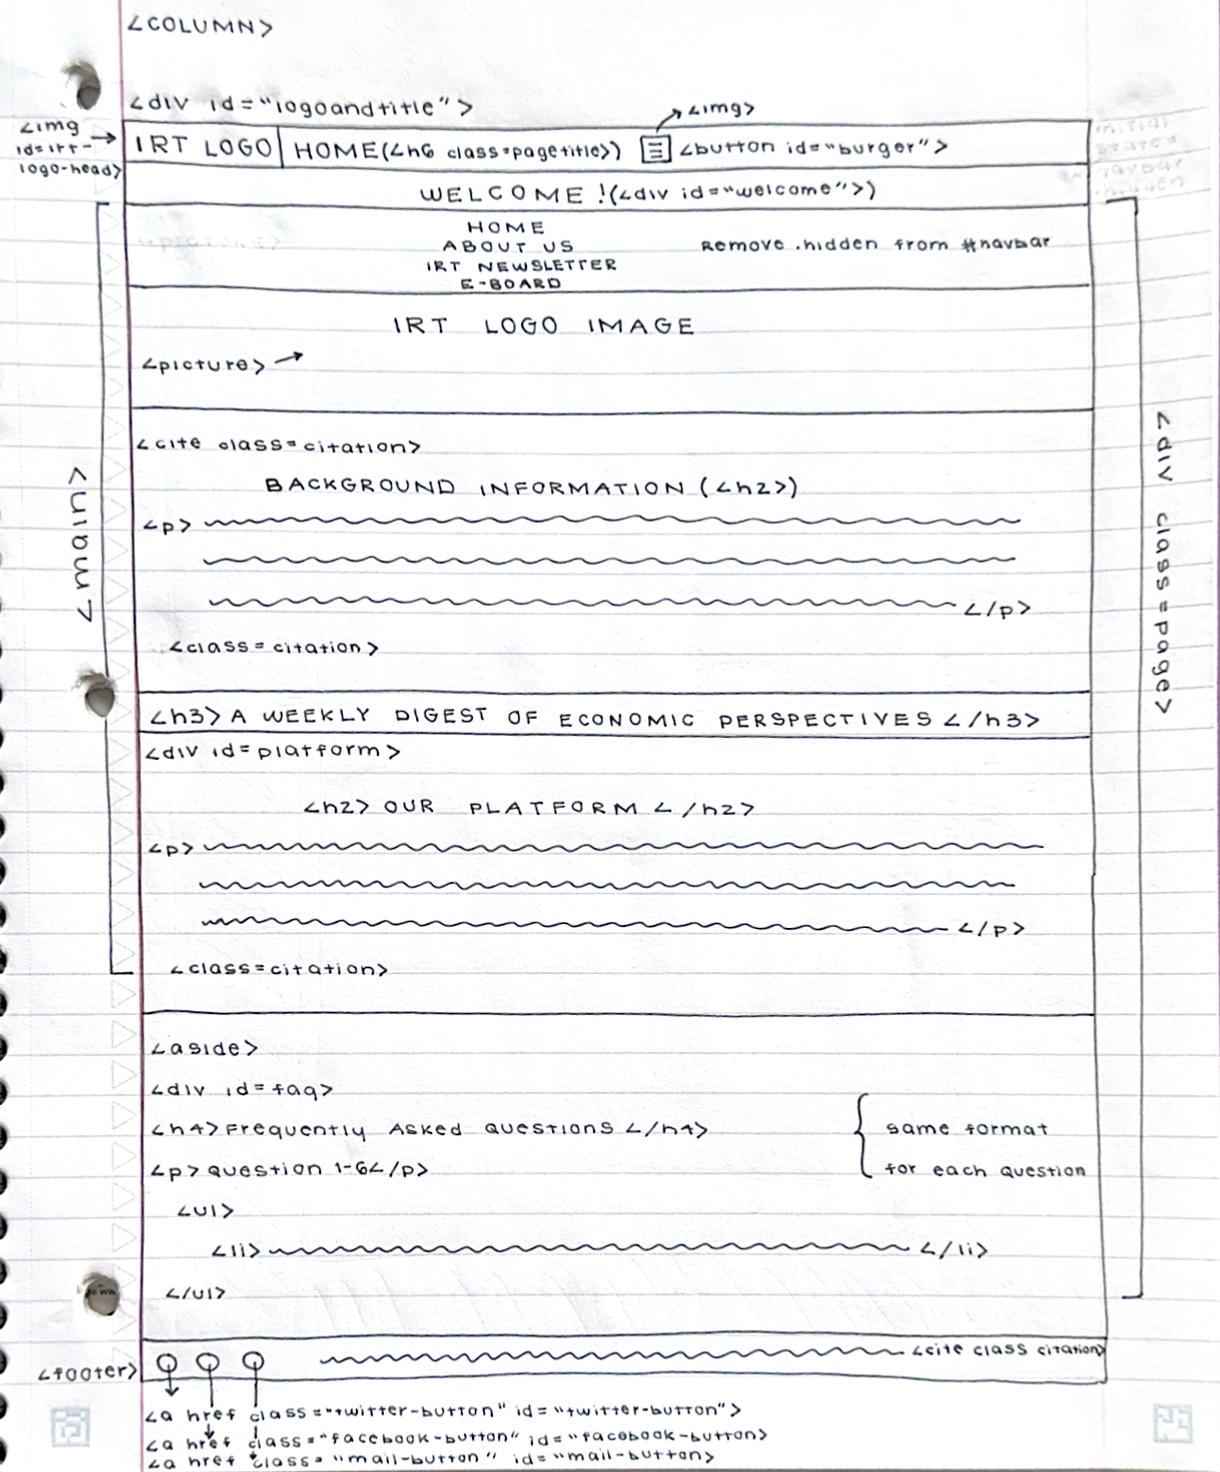 <COLUMN>
<div id="logoandtitle">
<img>
<img
id=irt-
logo-head>
IRT LOGO
HOME(<h6 class=pagetitle>)
<button id="burger">
WELCOME !(<div id="welcome">)
HOME
ABOUT US
IRT NEWSLETTER
E-BOARD
Remove .hidden from #navbar
IRT LOGO IMAGE
<picture>
<cite class=citation>
BACKGROUND INFORMATION (<h2>)
<p>
</p>
<class=citation>
<main>
<div class=page>
<h3> A WEEKLY DIGEST OF ECONOMIC PERSPECTIVES </h3>
<div id=platform>
<h2> OUR PLATFORM </h2>
<p>
</p>
<class=citation>
<aside>
<div id=faq>
<h4> Frequently Asked Questions </h4>
<p> question 1-6</p>
same format
for each question
<ul>
<li> </li>
</ul>
<footer>
<cite class citation>
<a href class="twitter-button" id="twitter-button">
<a href class="facebook-button" id="facebook-button>
<a href class="mail-button" id="mail-button>